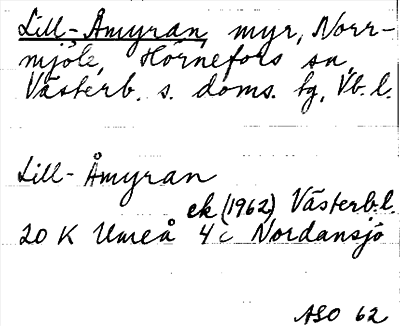 Lill-Åmyran, myr, Norr-
mjöle, Hörnefors sn,
Västerb. s. doms. tg, Vb.l.
Lill-Åmyran
ek (1962) Västerb.l.
20 K Umeå 4c Nordansjö
ASO 62